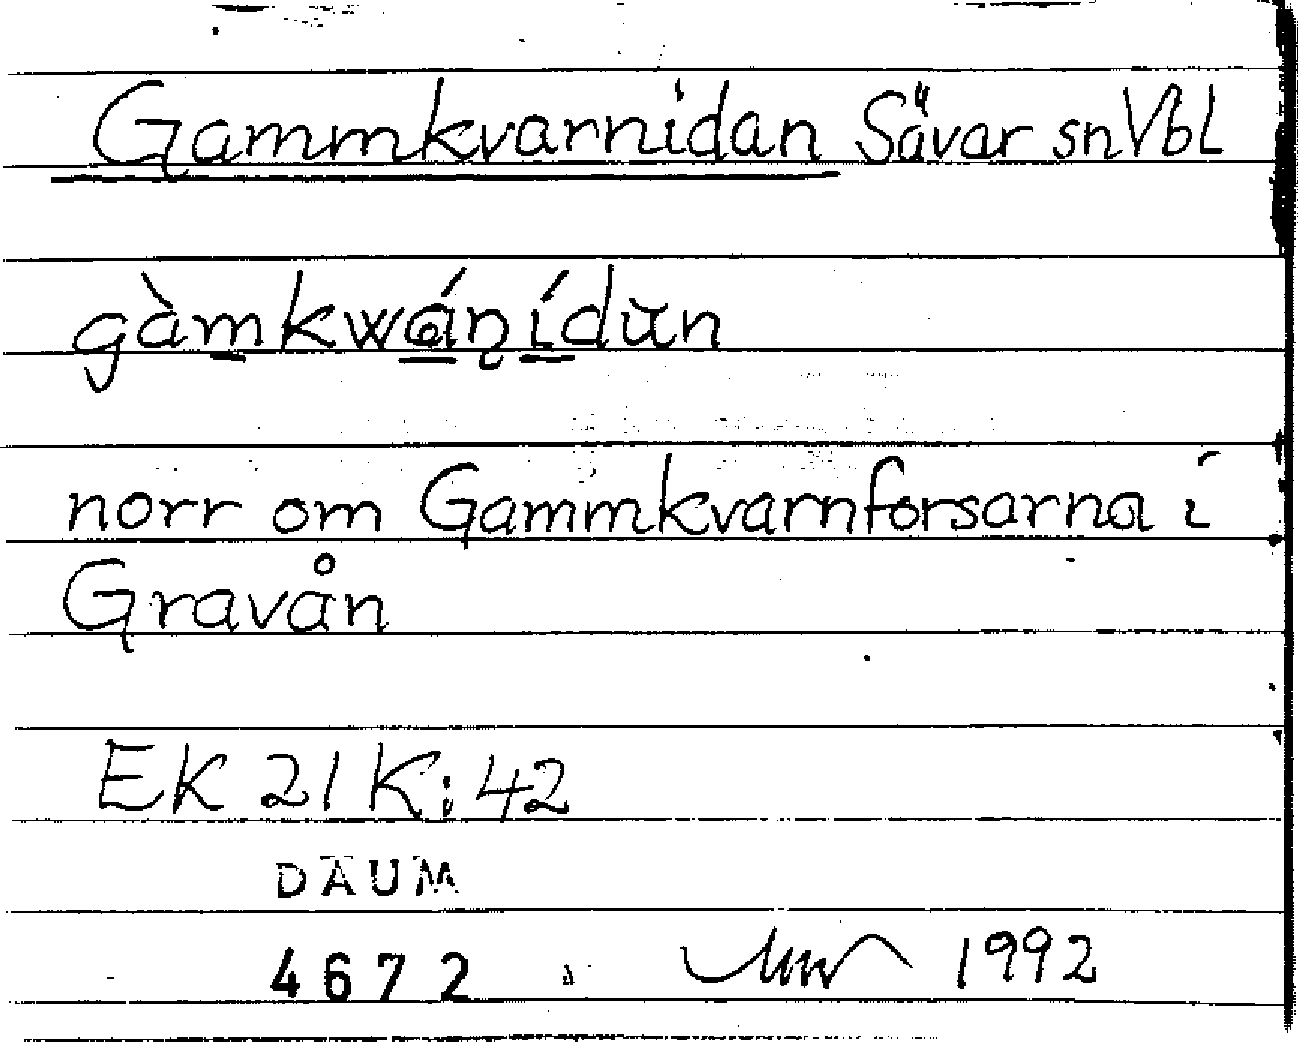 Gammkvarnidan Sävar sn Vbl
gàmkwáṇídun
norr om Gammkvarnforsarna i
Gravån
EK 21 K:42
DAUM
4672 1992